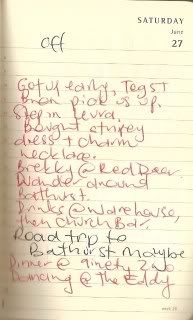 SATURDAY
June
27
Off
Got up early, Teg ST
Bran pick us up.
Step in
Bought stripey
dress + charm
necklace.
Brekky @ Red Door
Wander around
Bathurst.
Drinks @ Warehouse,
then Church Bar.
Road trip to
Bathurst maybe
Dinner @ ninety 2wo
Dancing @ The Eddy
week 26